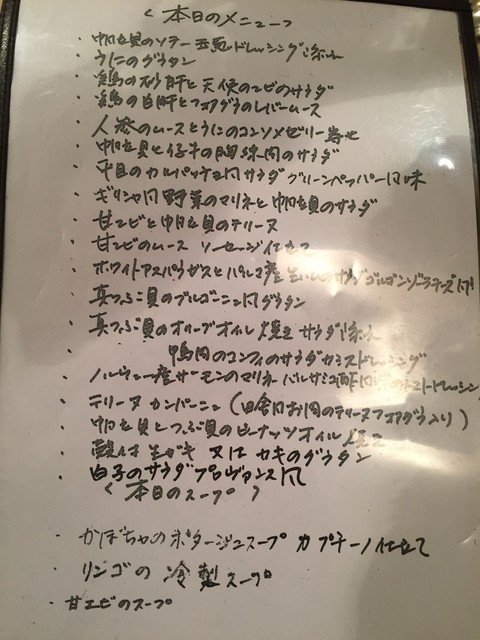 <本日のメニュー>
・帆立貝のソテー 玉葱ドレッシング添え
・うにのグラタン
・鶏の砂肝と天使のエビのサラダ
・鶏の白肝とフォアグラのレバームース
・人参のムースとうにのコンソメゼリー寄せ
・帆立貝と仔牛の胸線肉のサラダ
・平目のカルパッチョ風サラダ グリーンペッパー風味
・ギリシャ風野菜のマリネと帆立貝のサラダ
・甘エビと帆立貝のテリーヌ
・甘エビのムース ソーセージ仕立て
・ホワイトアスパラガスとパルマ産生ハムのサラダ ゴルゴンゾーラチーズ風
・真つぶ貝のブルゴーニュ風グラタン
・真つぶ貝のオリーブオイル焼き サラダ添え
・鴨肉のコンフィのサラダ カシスドレッシング
・ノルウェー産サーモンのマリネ バルサミコ酢
・テリーヌ カンパーニュ (田舎風お肉のテリーヌ フォアグラ入り)
・帆立貝とつぶ貝のピーナッツオイル焼き
・殻付生ガキ 又は カキのグラタン
・白子のサラダプロヴァンス風
<本日のスープ>
・かぼちゃのポタージュスープ カプチーノ仕立て
・リンゴの冷製スープ
・甘エビのスープ